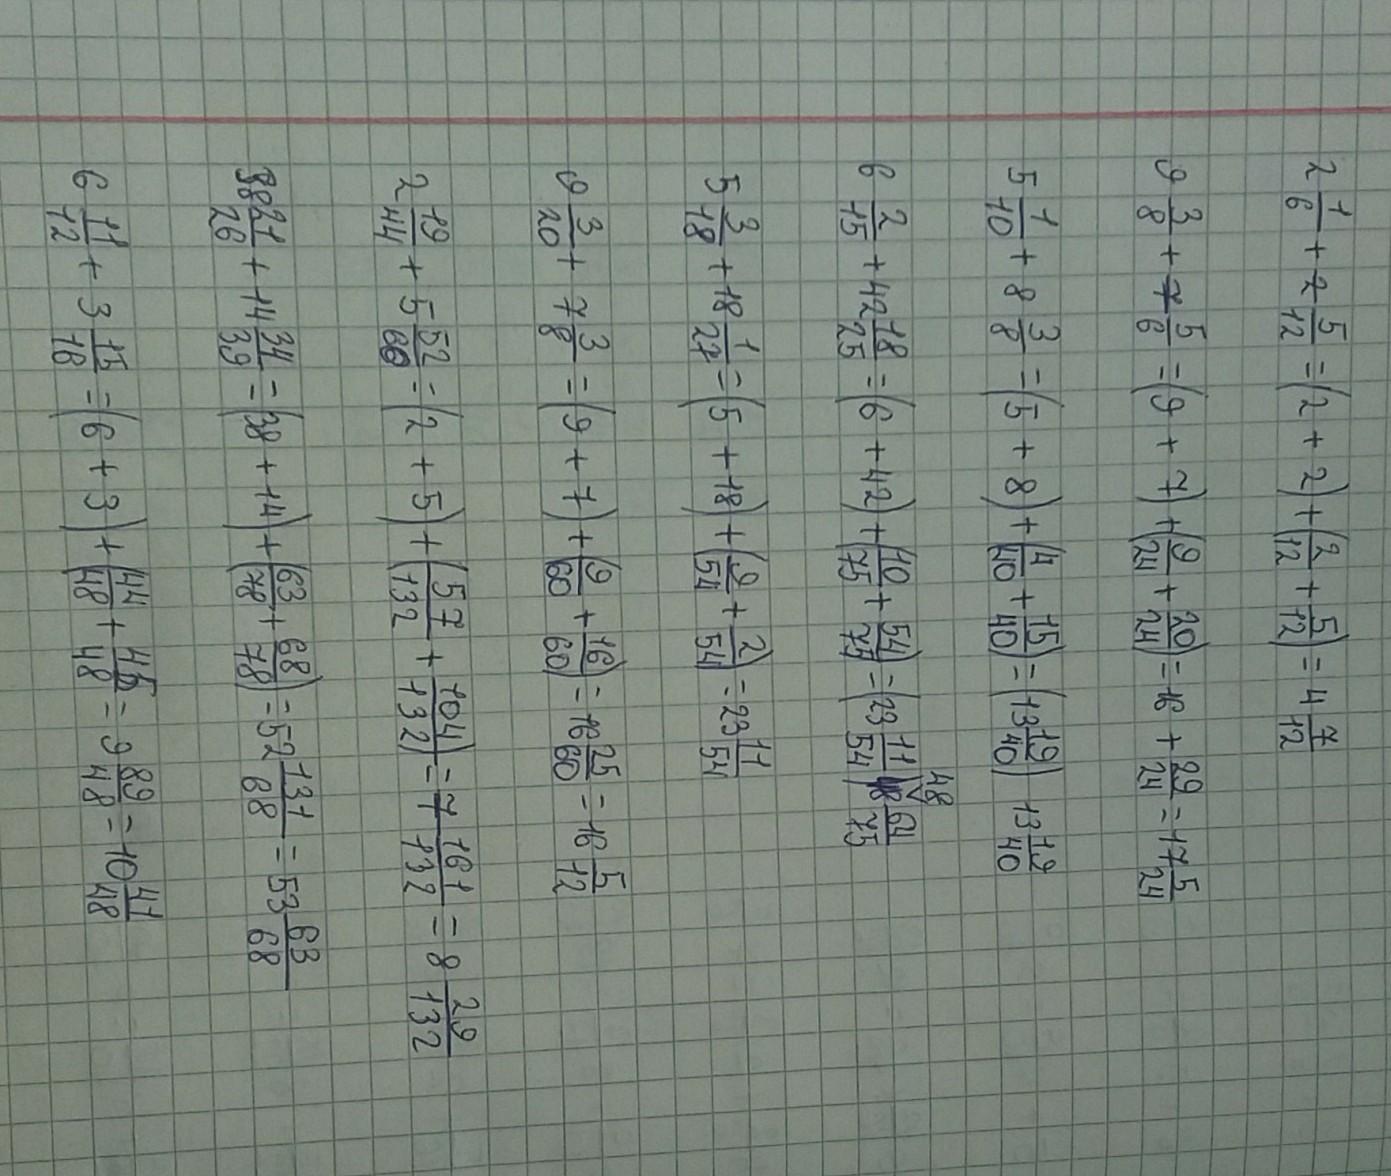 2 1/6 + 2 5/12 = (2 + 2) + (2/12 + 5/12) = 4 7/12
9 3/8 + 7 5/6 = (9 + 7) + (9/24 + 20/24) = 16 + 29/24 = 17 5/24
5 1/10 + 8 3/8 = (5 + 8) + (4/40 + 15/40) = (13 19/40) 13 19/40
6 2/15 + 42 18/25 = (6 + 42) + (10/75 + 54/75) = (23 11/54) 48 64/75
5 3/18 + 18 1/27 = (5 + 18) + (9/54 + 2/54) = 23 11/54
9 3/20 + 7 3/8 = (9 + 7) + (9/60 + 16/60) = 16 25/60 = 16 5/12
2 19/44 + 5 52/66 = (2 + 5) + (57/132 + 104/132) = 7 161/132 = 8 29/132
38 21/26 + 14 34/39 = (38 + 14) + (63/78 + 68/78) = 52 131/68 = 53 63/68
6 11/12 + 3 15/16 = (6 + 3) + (44/48 + 45/48 = 9 89/48 = 10 41/48